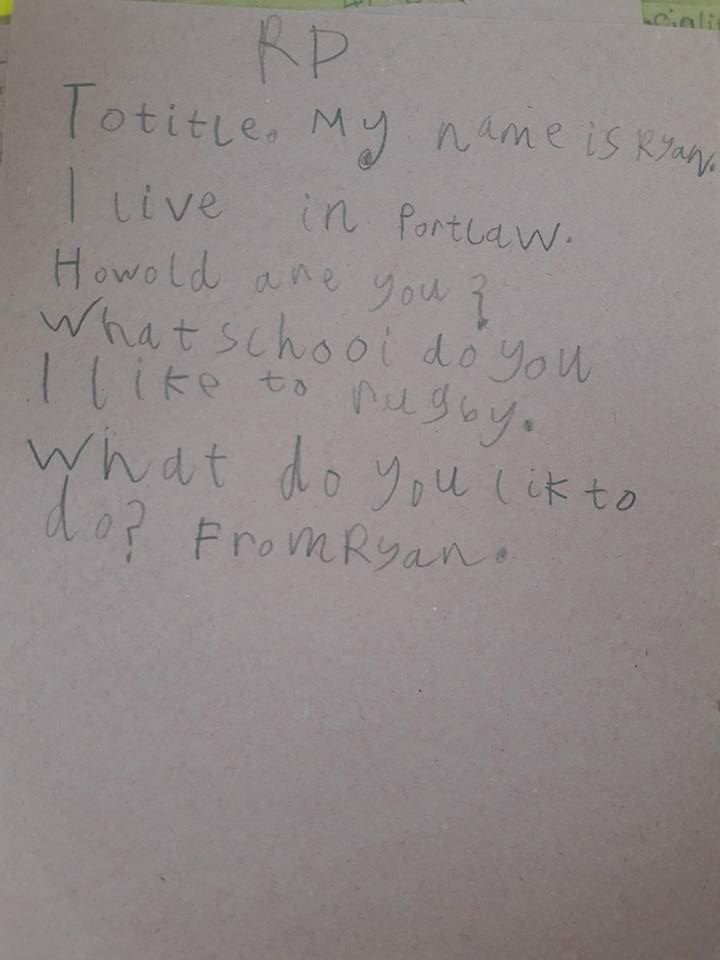 RD
To title. My name is Ryan.
I live in Portlaw.
How old are you?
What school do you
I like to rugby.
What do you lik to
do? From Ryan.